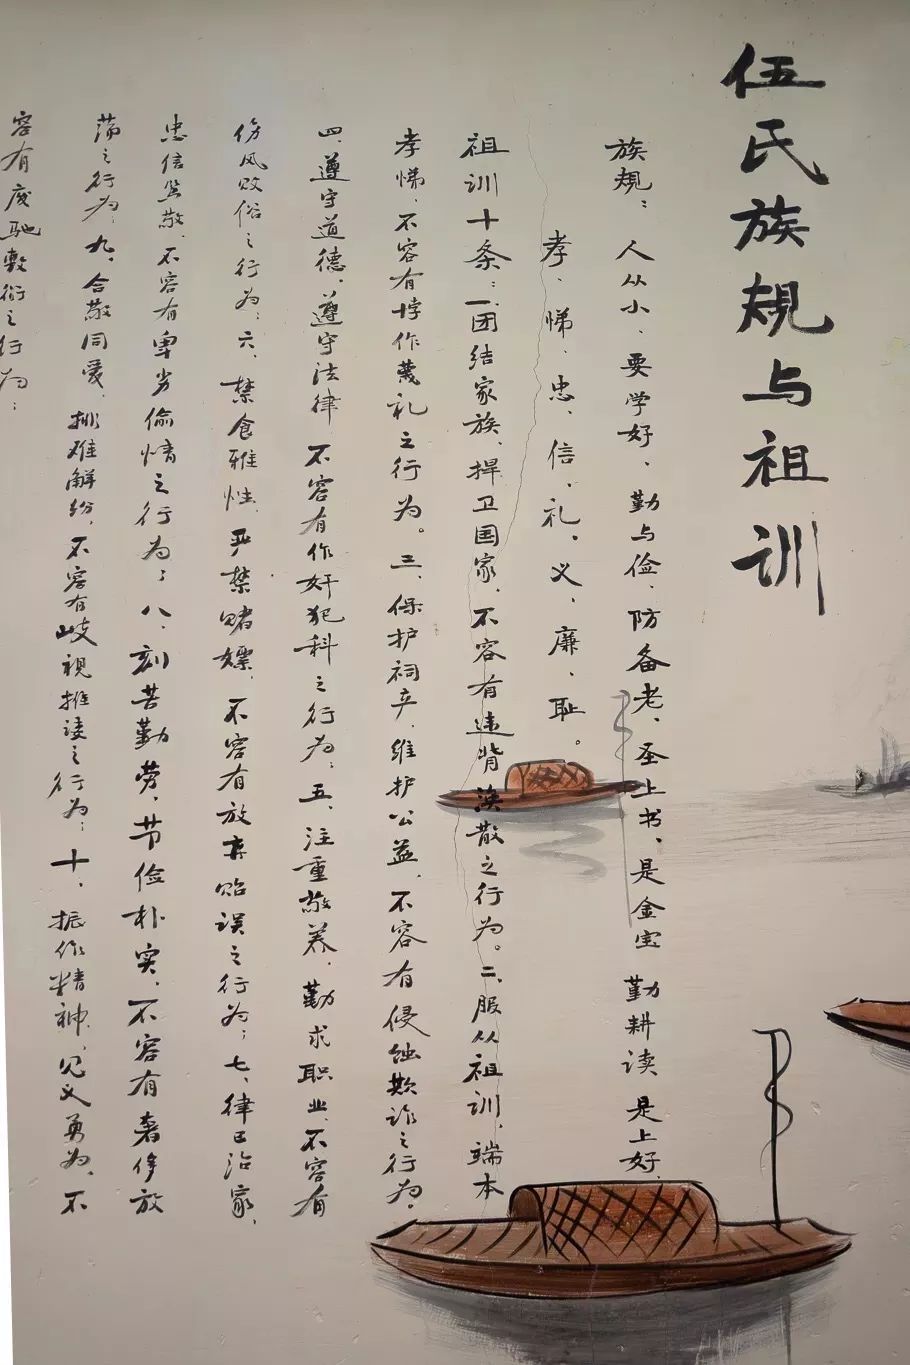 伍氏族規与祖训
族規：人从小、要学好、勤与俭、防备老、圣上书、是金宝 勤耕读 是上好、
孝、悌、忠、信、礼、义、廉、耻。
祖训十条：一团结家族、捍卫国家、不容有违背涣散之行为。二、服从祖训、端本
孝悌、不容有悖作蔑礼之行为。三、保护祠产、维护公益、不容有侵蚀欺诈之行为。
四、遵守道德、遵守法律 不容有作奸犯科之行为；五、注重教养、勤求职业、不容有
伤风败俗之行为；六、禁食雅性 严禁赌嫖、不容有放弃贻误之行为；七、律己治家、
忠信笃敬、不容有卑劣偷情之行为；八、刻苦勤劳、节俭朴实、不容有奢侈放
荡之行为；九、合敬同爱、排难解纷、不容有歧视推诿之行为；十、振作精神、见义勇为、不
容有废驰敷衍之行为；